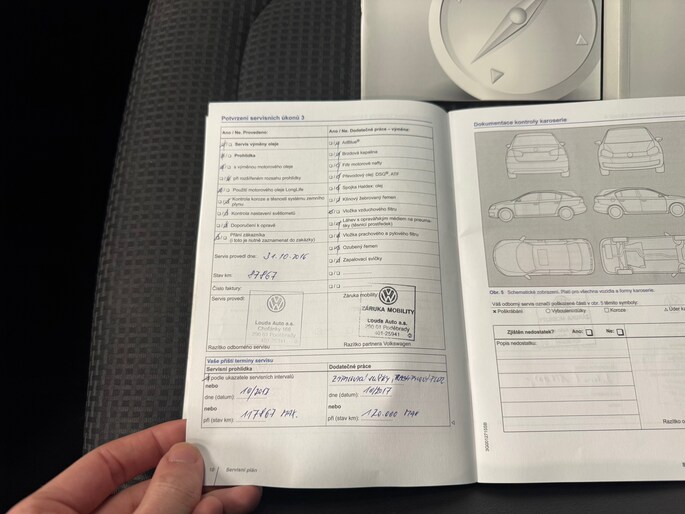 Potvrzení servisních úkonů 3
Ano / Ne Provedeno:
Servis výměny oleje
Prohlídka
s výměnou motorového oleje
při rozšířeném rozsahu prohlídky
Použití motorového oleje LongLife
Kontrola koroze a těsnosti systému zemního plynu
Kontrola nastavení světlometů
Doporučení k opravě
Přání zákazníka
(i toto je nutné zaznamenat do zakázky)
Servis proveden dne: 31.10.2016
Stav km: 87867
Číslo faktury:
Servis provedl:
Louda Auto a.s.
Razítko odborného servisu
Ano / Ne Dodatečné práce – výměny:
AdBlue®
Brzdová kapalina
Filtr motorové nafty
Převodový olej: DSG®, ATF
Spojka Haldex: olej
Klínový žebrovaný řemen
Vložka vzduchového filtru
Láhev s opravářským médiem na pneumatiky (těsnicí prostředek)
Vložka prachového a pylového filtru
Ozubený řemen
Zapalovací svíčky
Záruka mobility:
ZÁRUKA MOBILITY
Louda Auto a.s.
290 01 Poděbrady
Razítko partnera Volkswagen
Vaše příští termíny servisu
Servisní prohlídka
podle ukazatele servisních intervalů
nebo
dne (datum): 10/2017
nebo
při (stav km): 117867 MAX.
Dodatečné práce
dne (datum): 10/2017
nebo
při (stav km): 120.000 MAX
Servisní plán
Dokumentace kontroly karoserie
Obr. 5 Schematické zobrazení. Platí pro všechna vozidla a formy karoserie.
Váš odborný servis označí poškozené části v obr. 5 těmito symboly:
Poškrábání
Koroze
Zjištěn nedostatek?
Ano:
Ne:
Popis nedostatku: